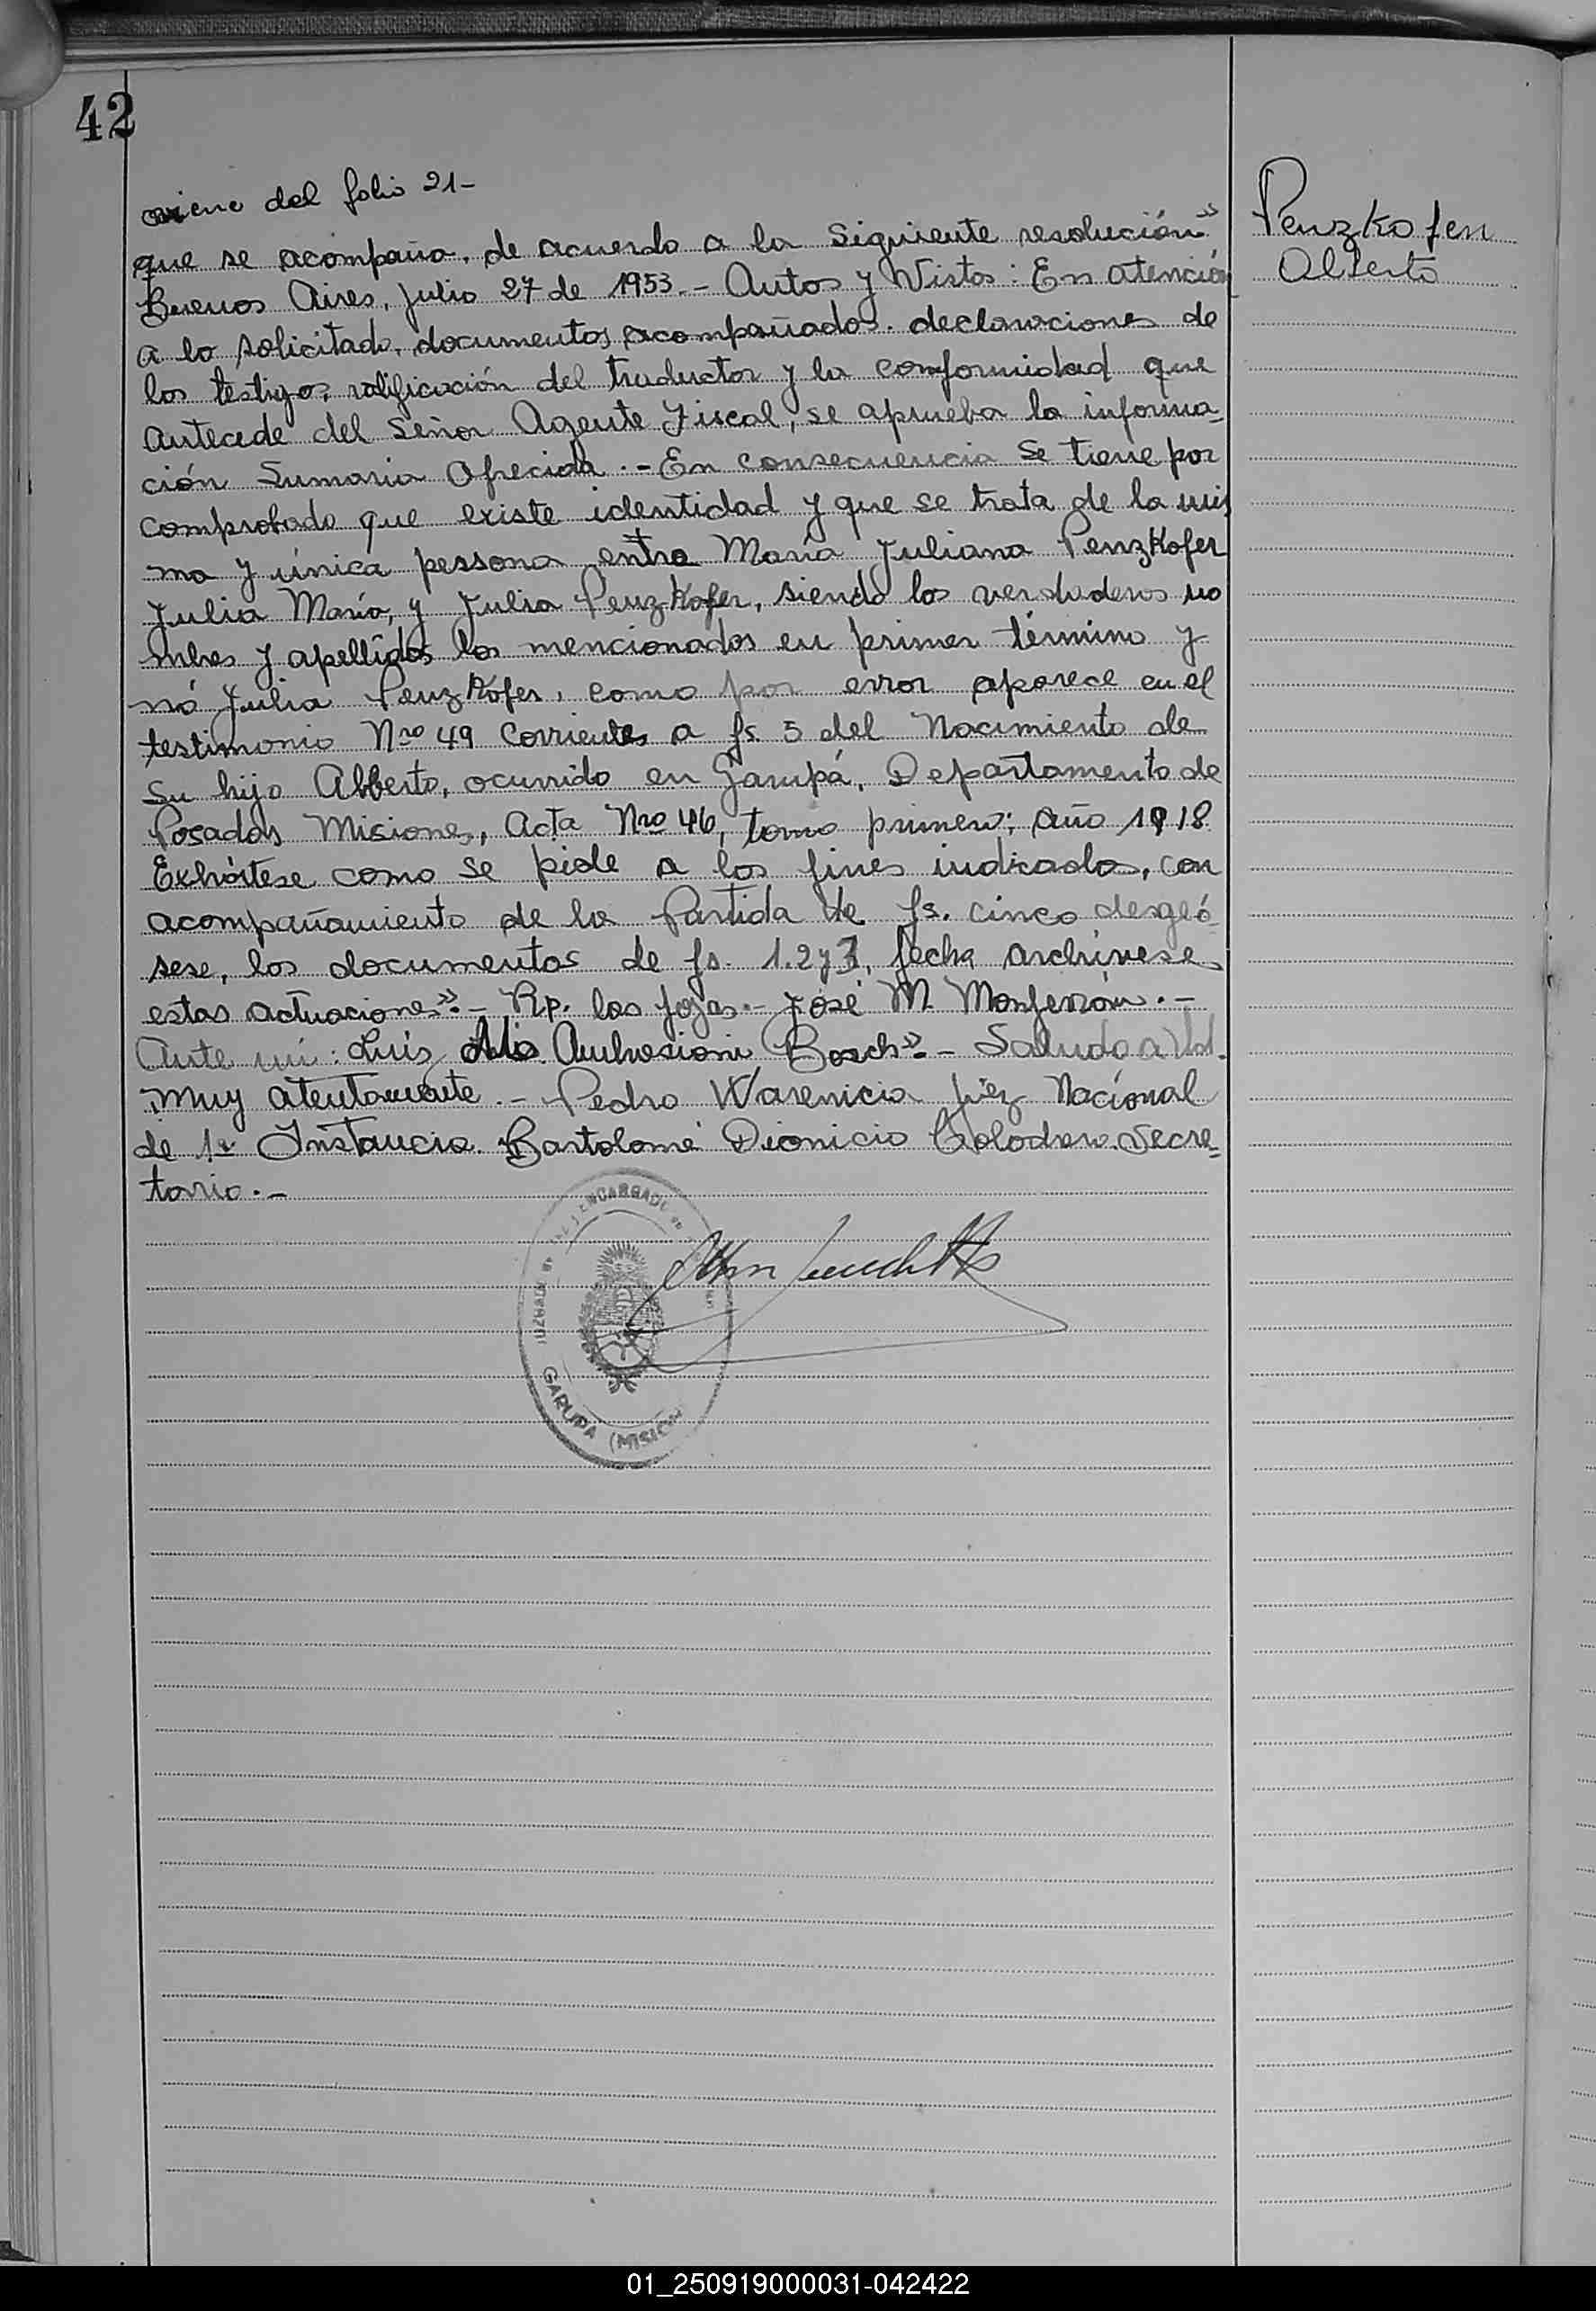 42
viene del folio 21-
Penzkofer
Alberto
que se acompaña, de acuerdo a la siguiente resolución"
Buenos Aires, Julio 27 de 1953.- Autos y Vistos: En atención
a lo solicitado, documentos acompañados, declaraciones de
los testigos, ratificación del traductor y la conformidad que
antecede del Señor Agente Fiscal, se aprueba la informa-
ción Sumaria Ofrecida.- En consecuencia se tiene por
comprobado que existe identidad y que se trata de la mis
ma y única persona entre María Juliana Penzkofer
Julia María, y Julia Penzkofer, siendo los verdaderos no
mbres y apellidos los mencionados en primer término y
nó Julia Penzkofer, como por error aparece en el
testimonio Nro 49 corrientes a fs. 5 del Nacimiento de
su hijo Alberto, ocurrido en Garupá, Departamento de
Posadas Misiones, Acta Nro 46, tomo primero; año 1918.
Exhórtese como se pide a los fines indicados, con
acompañamiento de la Partida de fs. cinco desgló-
sese, los documentos de fs. 1.2 y 3, fecha archívese
estas actuaciones".- Rp. las fojas.- José M. Monferrán.-
Ante mí: Luis Ambrosioni Bosch".- Saludo a Ud.
muy atentamente.- Pedro Warenicia Juez Nacional
de 1a Instancia. Bartolomé Dionicio Golodrero. Secre-
tario.-
ENCARGADO
GARUPÁ (MISION
01_250919000031-042422